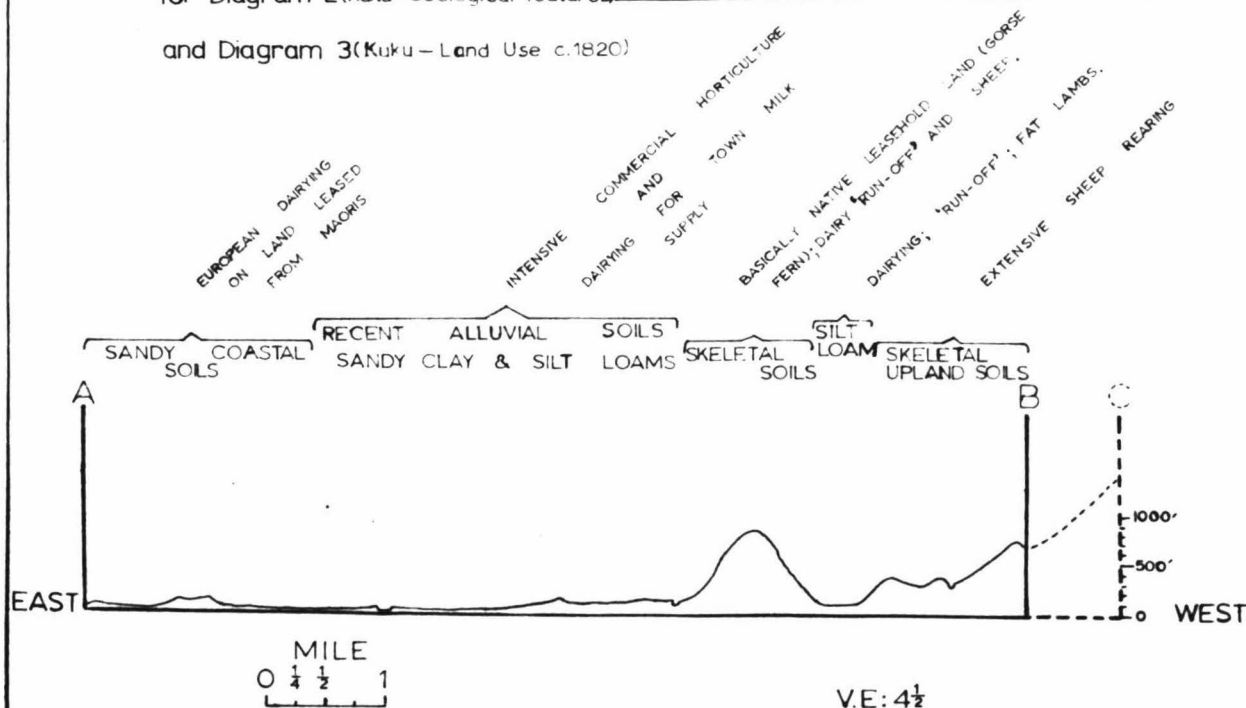 for Diagram
and Diagram 3(Kuku – Land Use c.1820)
EUROPEAN DAIRYING
ON LAND LEASED
FROM MAORIS
INTENSIVE COMMERCIAL HORTICULTURE
AND
DAIRYING FOR TOWN MILK
SUPPLY
BASICALLY NATIVE LEASEHOLD LAND (GORSE
FERN); DAIRY 'RUN-OFF' AND SHEEP.
DAIRYING; 'RUN-OFF'; FAT LAMBS.
EXTENSIVE SHEEP REARING
SANDY COASTAL
SOILS
RECENT ALLUVIAL SOILS
SANDY CLAY & SILT LOAMS
SKELETAL
SOILS
SILT
LOAM
SKELETAL
UPLAND SOILS
A
B
C
1000'
500'
0
EAST
WEST
MILE
0 ¼ ½ 1
V.E: 4½